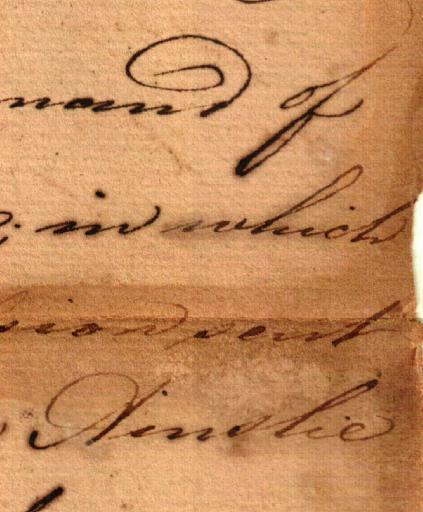 mand of
; in which
sion sent
Ainslie